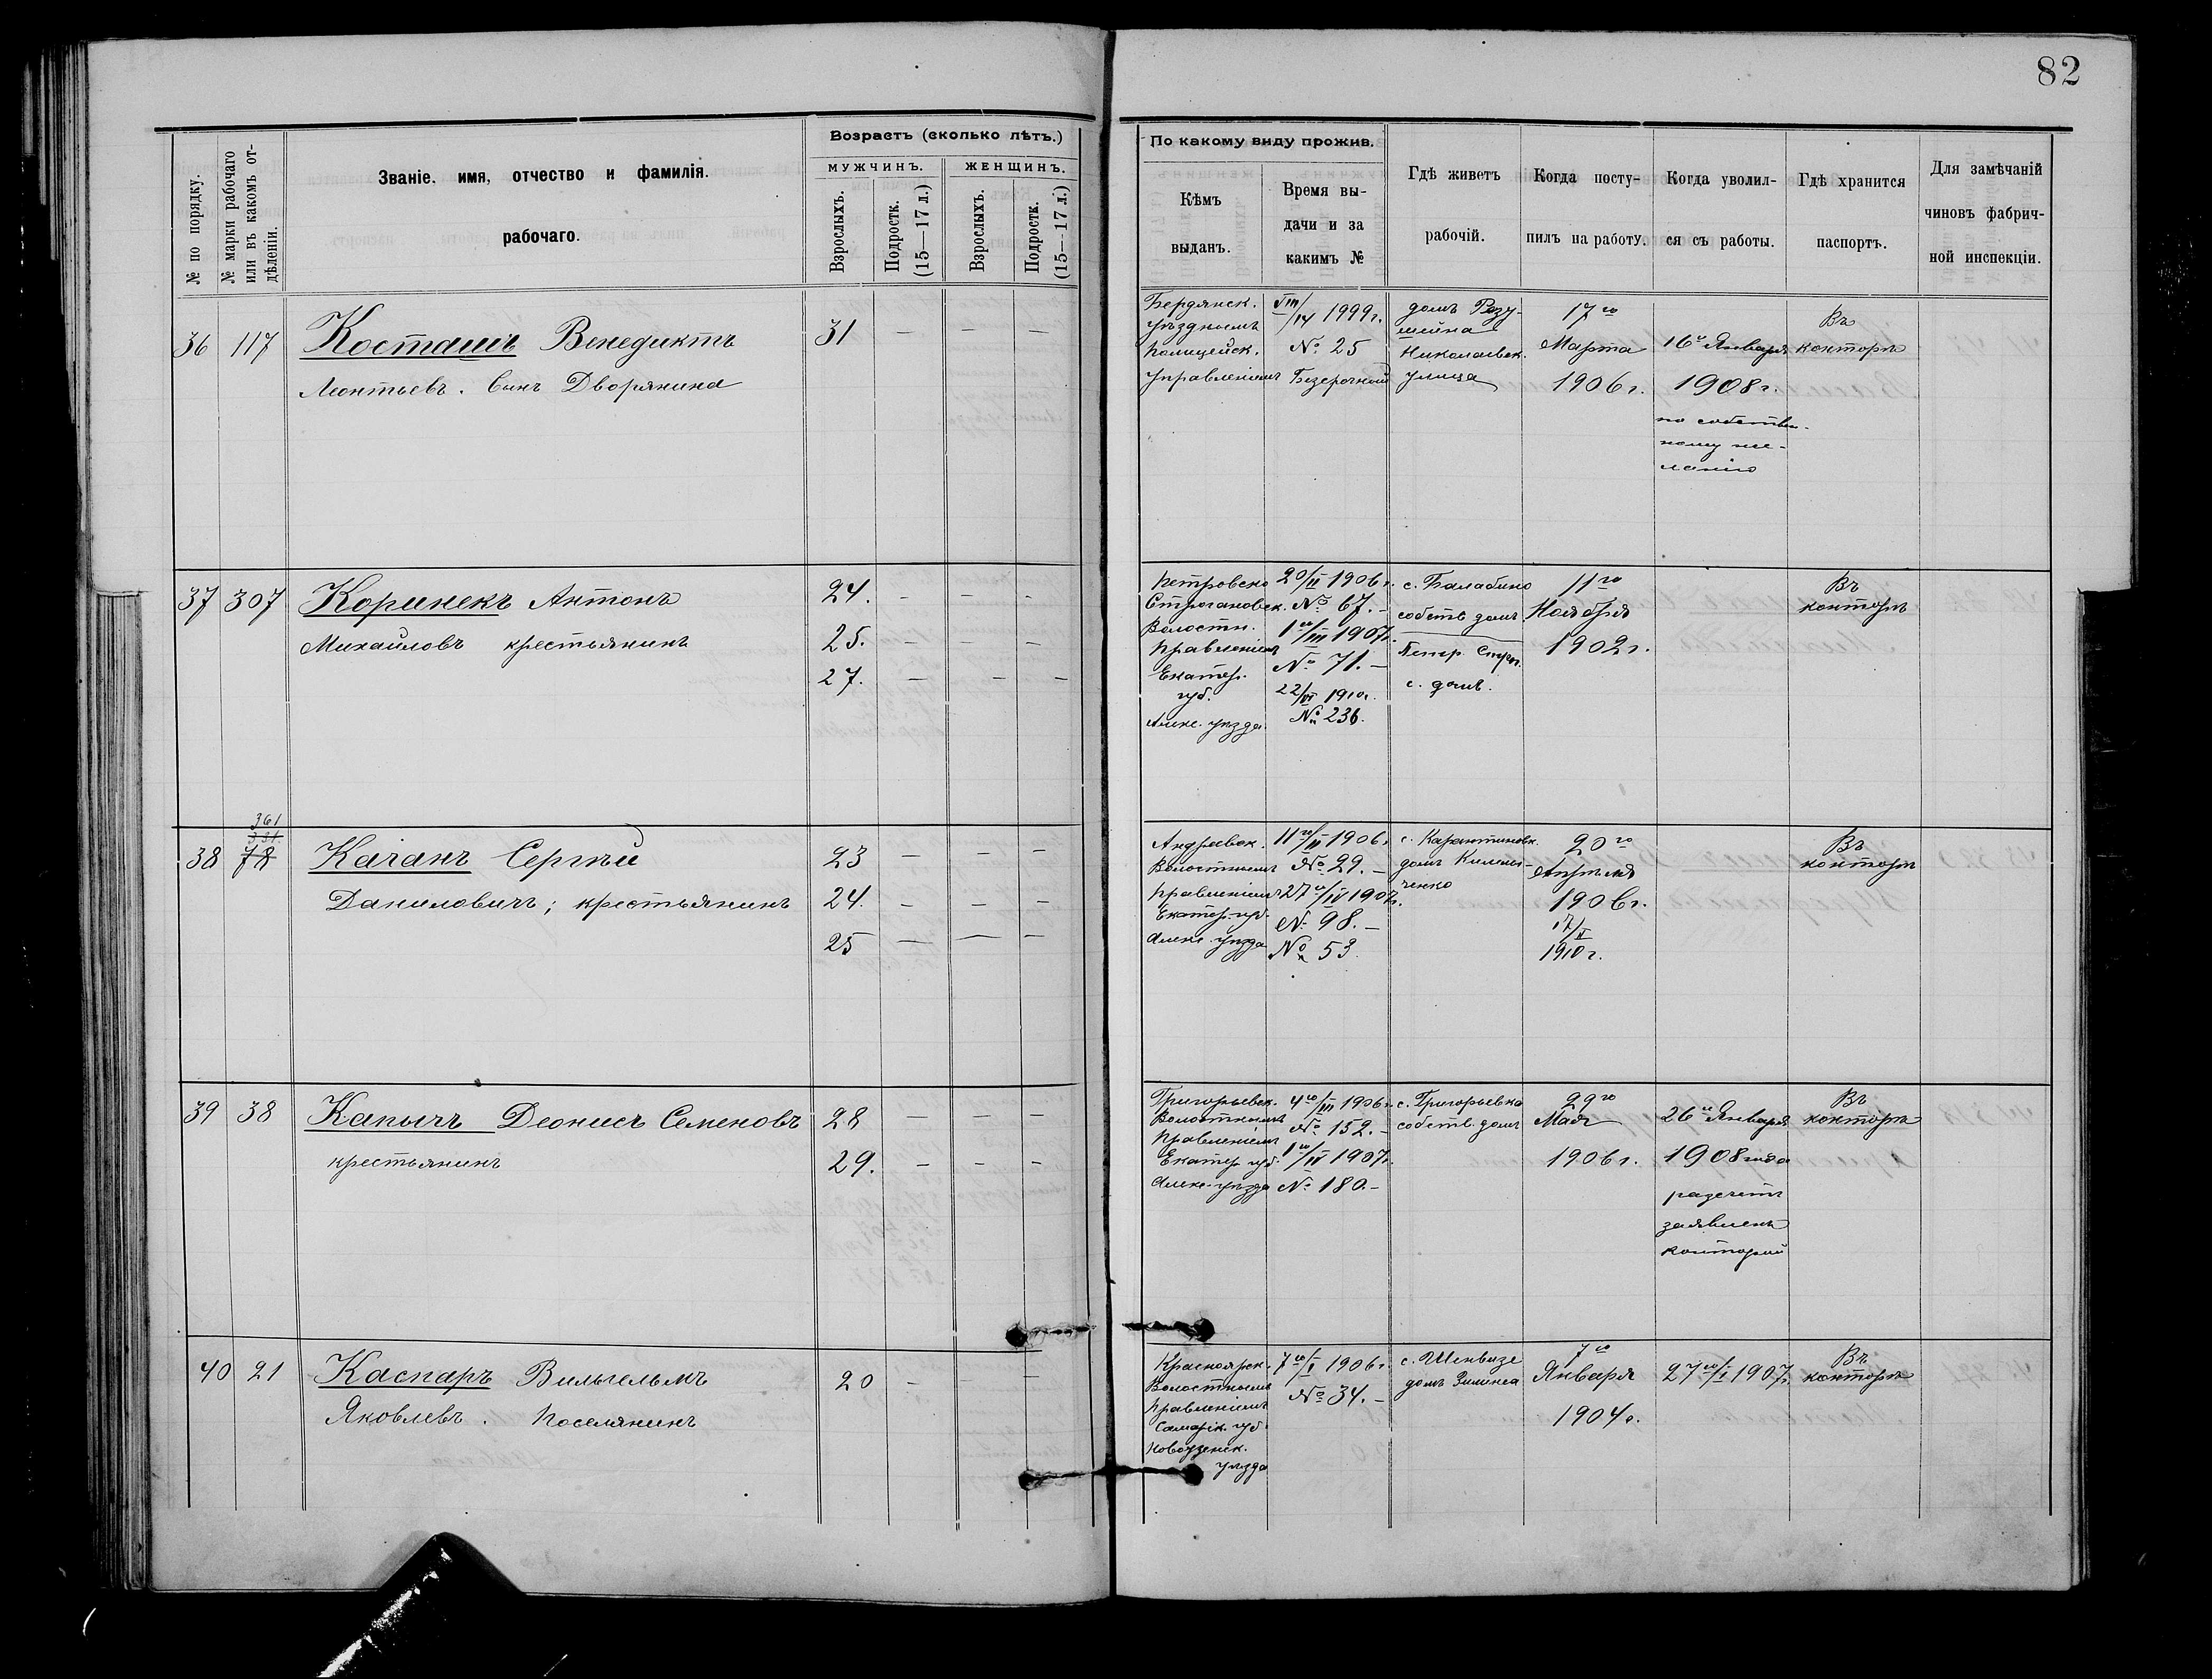 82
№ по порядку.
№ марки рабочаго или въ какомъ отдѣленіи.
Званіе, имя, отчество и фамилія
рабочаго.
Возрастъ (сколько лѣтъ.)
МУЖЧИНЪ.
ЖЕНЩИНЪ.
Взрослыхъ.
Подростк. (15—17 л.)
Взрослыхъ.
Подростк. (15—17 л.)
По какому виду прожив.
Кѣмъ
выданъ.
Время вы-
дачи и за
какимъ №
Гдѣ живетъ
рабочій.
Когда посту-
пилъ на работу.
Когда уволил-
ся съ работы.
Гдѣ хранится
паспортъ.
Для замѣчаній
чиновъ фабрич-
ной инспекціи.
36 117 Косташъ Венедиктъ
Леонтьевъ. Сынъ Дворянина
31 — — —
Бердянск.
уѣзднымъ
Полицейск.
Управленіемъ
VIII/14 1999 г.
№ 25
Безсрочный
домъ Резу-
Николаевск.
улица
17го
Марта
1906 г.
16го Января
1908 г.
по собствен-
ному же-
ланію
Въ
конторѣ
37 307 Коринекъ Антонъ
Михайловъ крестьянинъ
24. — — —
25. — — —
27. — — —
Петровско
Строгановск.
Волостн.
Правленіемъ
Екатер.
губ.
Алекс. уѣзда.
20/II 1906 г.
№ 67. —
1го/III 1907 г.
№ 71. —
22/VI 1910 г.
№ 236.
с. Балабино
собств. домъ.
с. домъ.
11го
Ноября
1902 г.
Въ
конторѣ
361
331.
38 78 Качанъ Сергѣй
Даниловичъ; крестьянинъ
23 — — —
24. — — —
25 — — —
Андреевск.
Волостнымъ
Правленіемъ
Екатер. губ.
Алекс. уѣзда
11го/II 1906 г.
№ 29. —
27го/IV 1907 г.
№ 98. —
№ 53.
с. Карантиновк.
20го
Апрѣля
1906 г.
17/II
1910 г.
Въ
конторѣ
39 38 Капычъ Деонисъ Семеновъ
крестьянинъ
28 — — —
29. — — —
Григорьевск.
Волостнымъ
Правленіемъ
Екатер. губ.
Алекс. уѣзда
4го/III 1906 г.
№ 152. —
1го/IV 1907 г.
№ 180. —
с. Григорьевка
собств. домъ
29го
Мая
1906 г.
26го Января
1908 года
разсчетъ
заявленъ
конторой
Въ
конторѣ
40 21 Каспаръ Вильгельмъ
Яковлевъ. Поселянинъ
20 — — —
Красноярск.
Волостнымъ
Правленіемъ
Самарск. губ.
Новоузенск.
уѣзда
7го/I 1906 г.
№ 34. —
с. Шенвизе
7го
Января
1904 г.
27го/I 1907 г.
Въ
конторѣ